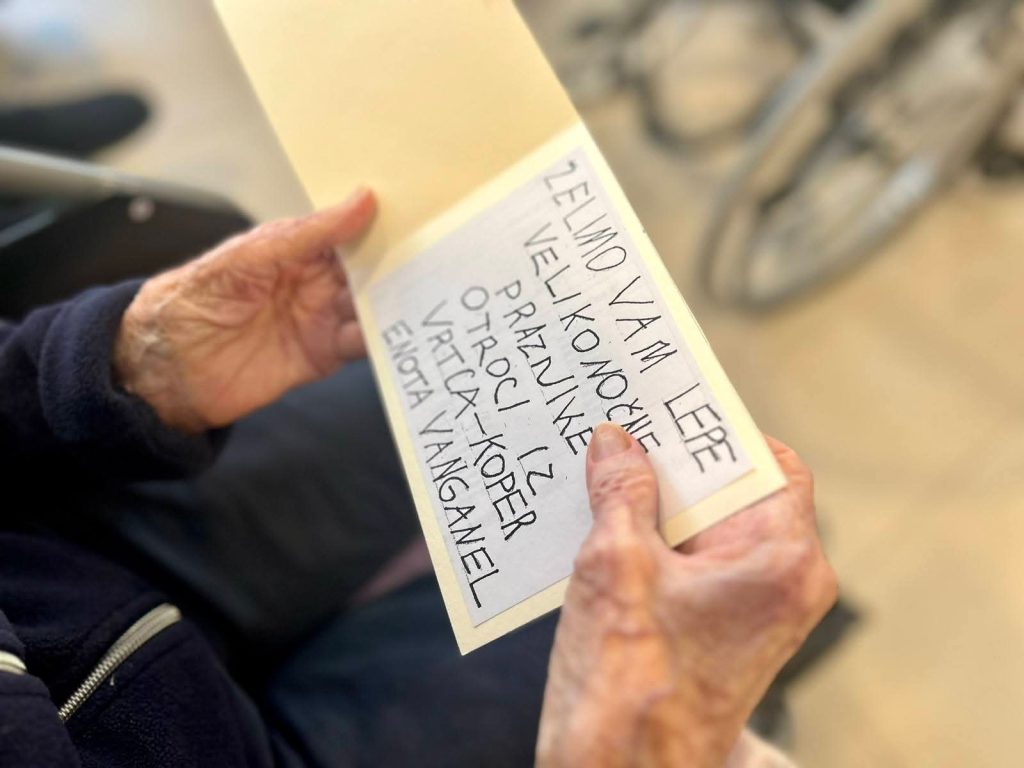 ŽELIMO VAM LEPE
VELIKONOČNE
PRAZNIKE
OTROCI IZ
VRTCA-KOPER
ENOTA VANGANEL